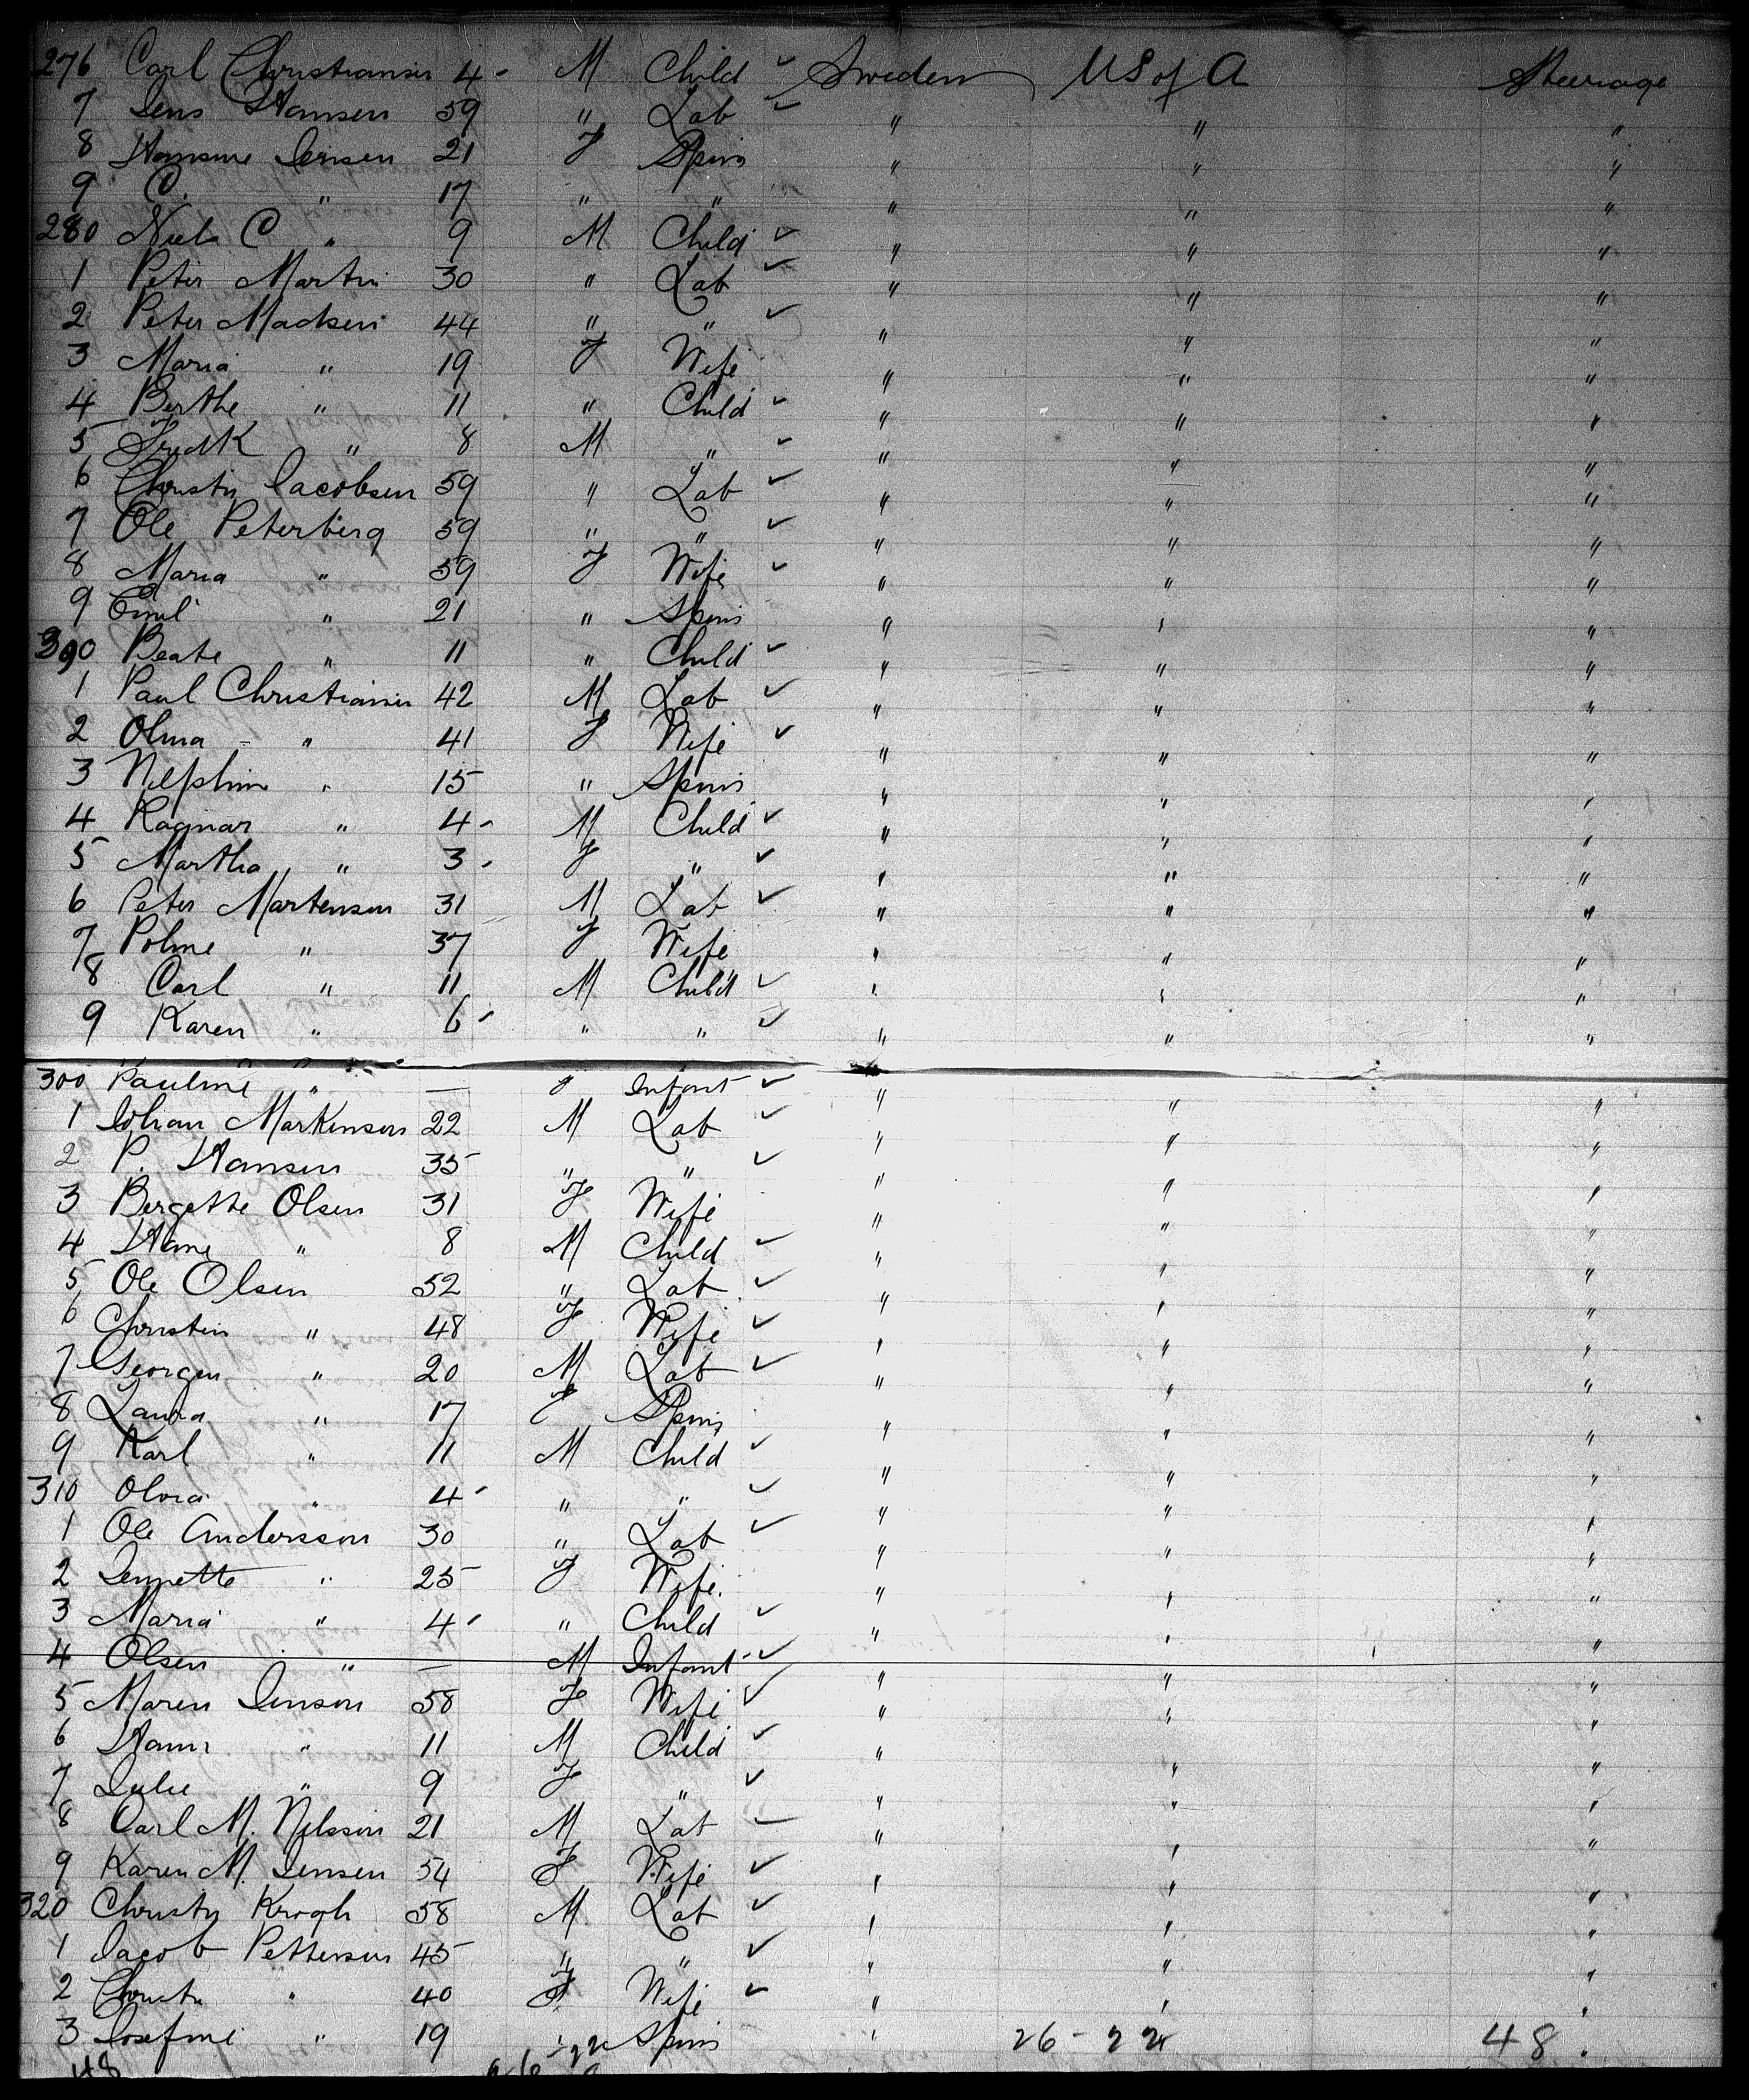 276 Carl Christiansen 4 - M Child ✓ Sweden US of A Steerage
7 Jens Hansen 59 " Lab ✓ " " "
8 Hansine Jensen 21 F Spins " " "
9 C. " 17 " " " " "
280 Niels C " 9 M Child ✓ " " "
1 Peter Martin 30 " Lab ✓ " " "
2 Peter Madsen 44 " " ✓ " " "
3 Maria " 19 F Wife " " "
4 Berthe " 11 " Child ✓ " " "
5 Fredk " 8 M " ✓ " " "
6 Christn Jacobsen 59 " Lab ✓ " " "
7 Ole Peterberg 59 " " ✓ " " "
8 Maria " 59 F Wife ✓ " " "
9 Emil " 21 " Spins " " "
290 Beate " 11 " Child ✓ " " "
1 Paul Christiansen 42 M Lab ✓ " " "
2 Olma - " 41 F Wife ✓ " " "
3 " 15 " Spins " " "
4 Ragnar " 4 - M Child ✓ " " "
5 Martha " 3 - F " ✓ " " "
6 Peter Martensen 31 M Lab ✓ " " "
7 Polme " 37 F Wife " " "
8 Carl " 11 M Child ✓ " " "
9 Karen " 6 - " " ✓ " " "
300 Pauline " — F Infant ✓ " " "
1 Johan Markensen 22 M Lab ✓ " " "
2 P. Hansen 35 " " ✓ " " "
3 Bergette Olsen 31 F Wife " " "
4 Hans " 8 M Child ✓ " " "
5 Ole Olsen 52 " Lab ✓ " " "
6 Christin " 48 F Wife ✓ " " "
7 Georgen " 20 M Lab ✓ " " "
8 Laura " 17 F Spins " " "
9 Karl " 11 M Child ✓ " " "
310 " 4 - " " ✓ " " "
1 Ole Andersson 30 " Lab ✓ " " "
2 Jennette " 25 F Wife. " " "
3 Maria " 4 - " Child ✓ " " "
4 Olsen " — M Infant ✓ " " "
5 Maren Jenson 58 F Wife ✓ " " "
6 Hann " 11 M Child ✓ " " "
7 Julie " 9 F " ✓ " " "
8 Carl M. Nilsson 21 M Lab ✓ " " "
9 Karen M. Jensen 54 F Wife ✓ " " "
320 Christn Krogh 58 M Lab ✓ " " "
1 Jacob Pettersen 45 " " ✓ " " "
2 Christn " 40 F Wife ✓ " " "
3 Josefine " 19 " Spins " 26 - 22 48
48 26 - 22